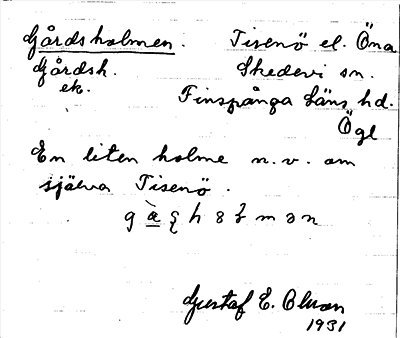 Gårdsholmen. Tisenö el. Öna
Gårdsh. Skedevi sn.
ek. Finspånga läns hd.
Ögl
En liten holme n.v. om
själva Tisenö.
Gustaf E.
1931